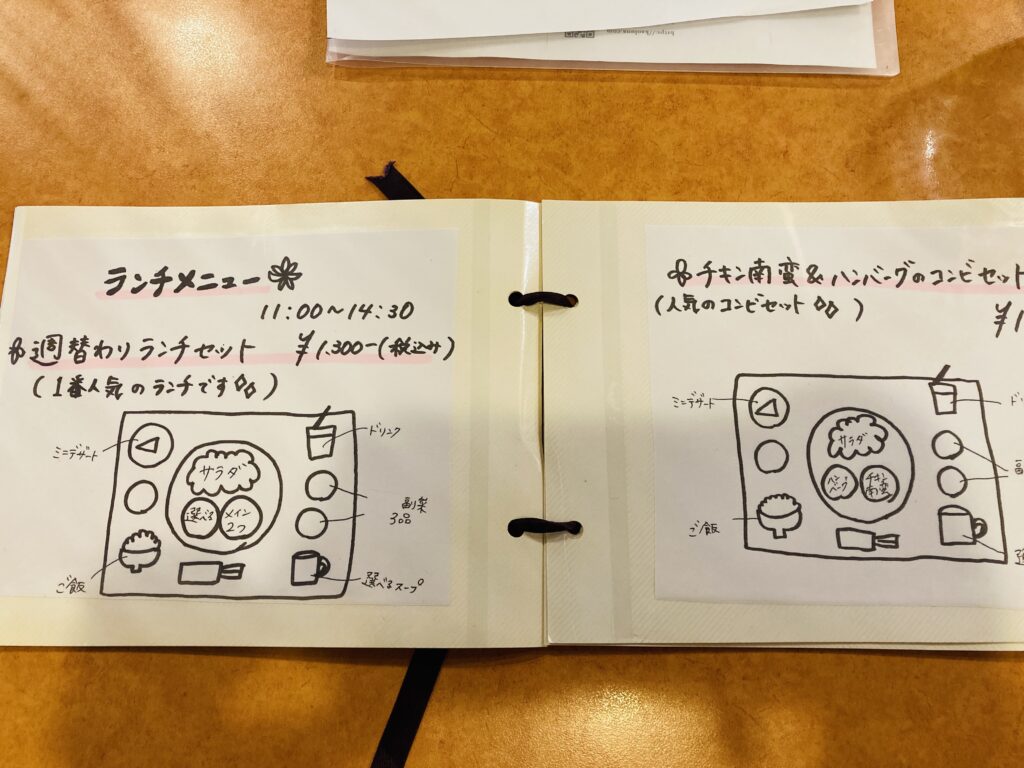 https://kaobana.com
ランチメニュー
11:00〜14:30
週替わりランチセット ¥1.300-(税込み)
(1番人気のランチです)
ミニデザート
ドリンク
サラダ
選べる
メイン
2つ
副菜
3品
ご飯
選べるスープ
チキン南蛮&ハンバーグのコンビセット
(人気のコンビセット)
¥1
ミニデザート
サラダ
ハンバーグ
チキン
南蛮
ご飯